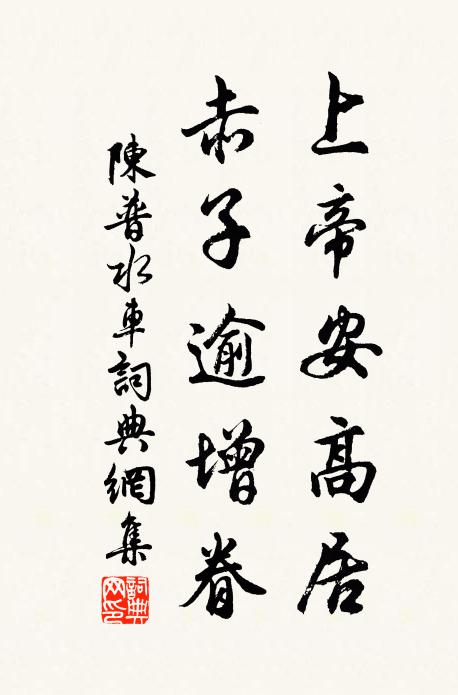 上帝安高居
赤子逾增眷
陳普水車詞典網集
詞典网印